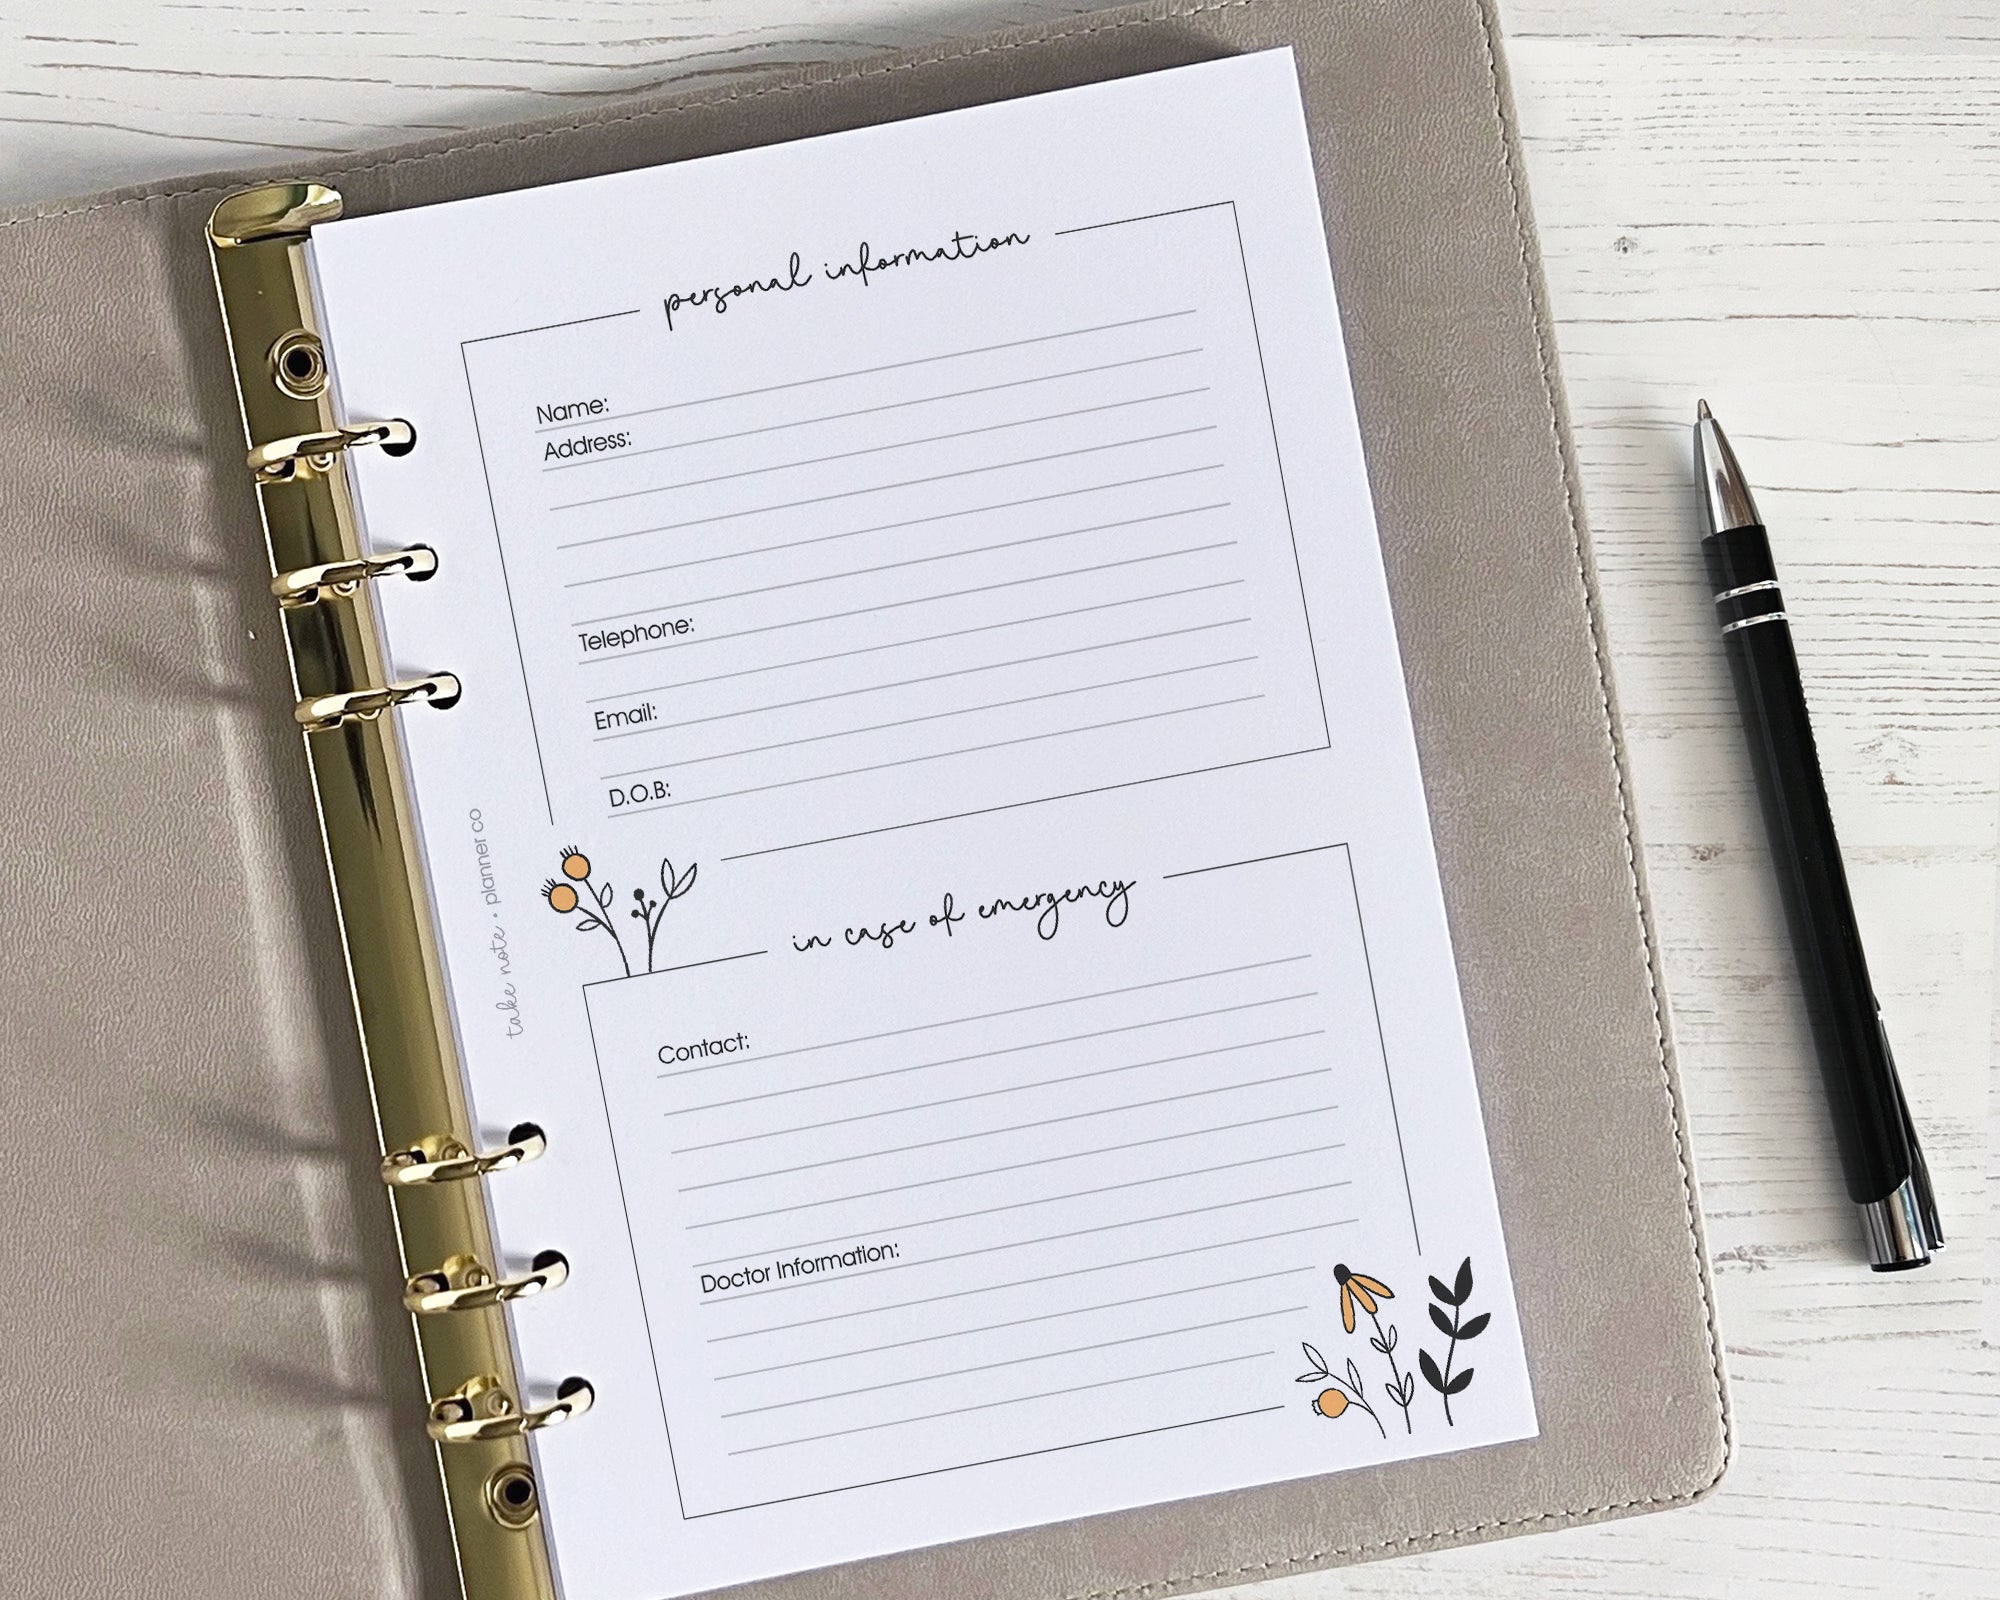 personal information
Name:
Address:
Telephone:
Email:
D.O.B:
take note • planner co
in case of emergency
Contact:
Doctor Information: